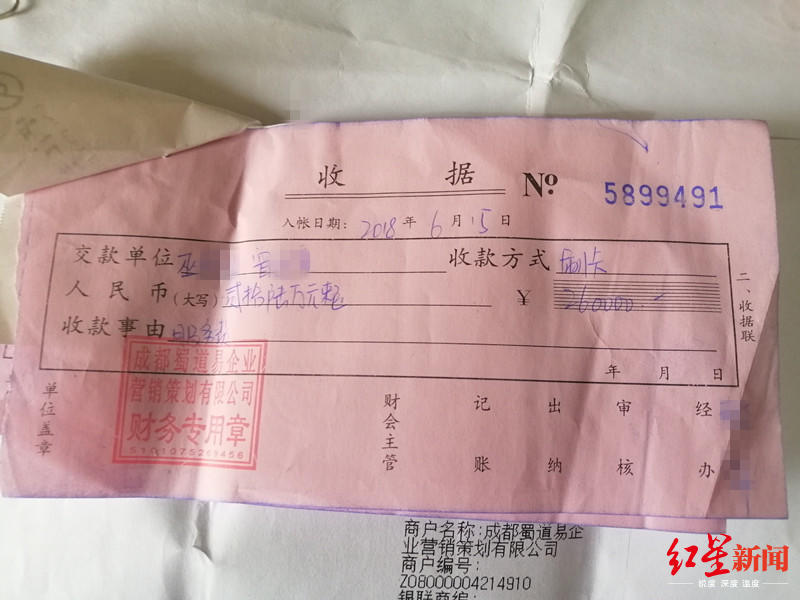 收 据 № 5899491
入帐日期: 2018 年 6 月 15 日
交款单位 巫 晋 收款方式 刷卡
人民币(大写) 贰拾陆万元整 ¥ 260000 —
收款事由 服务费
年 月 日
二、收据联
单位盖章
成都蜀道易企业
营销策划有限公司
财务专用章
5101075269456
财会主管 记账 出纳 审核 经办
商户名称:成都蜀道易企
业营销策划有限公司
商户编号:
Z08000004214910
银联商编:
红星新闻
锐度 深度 温度